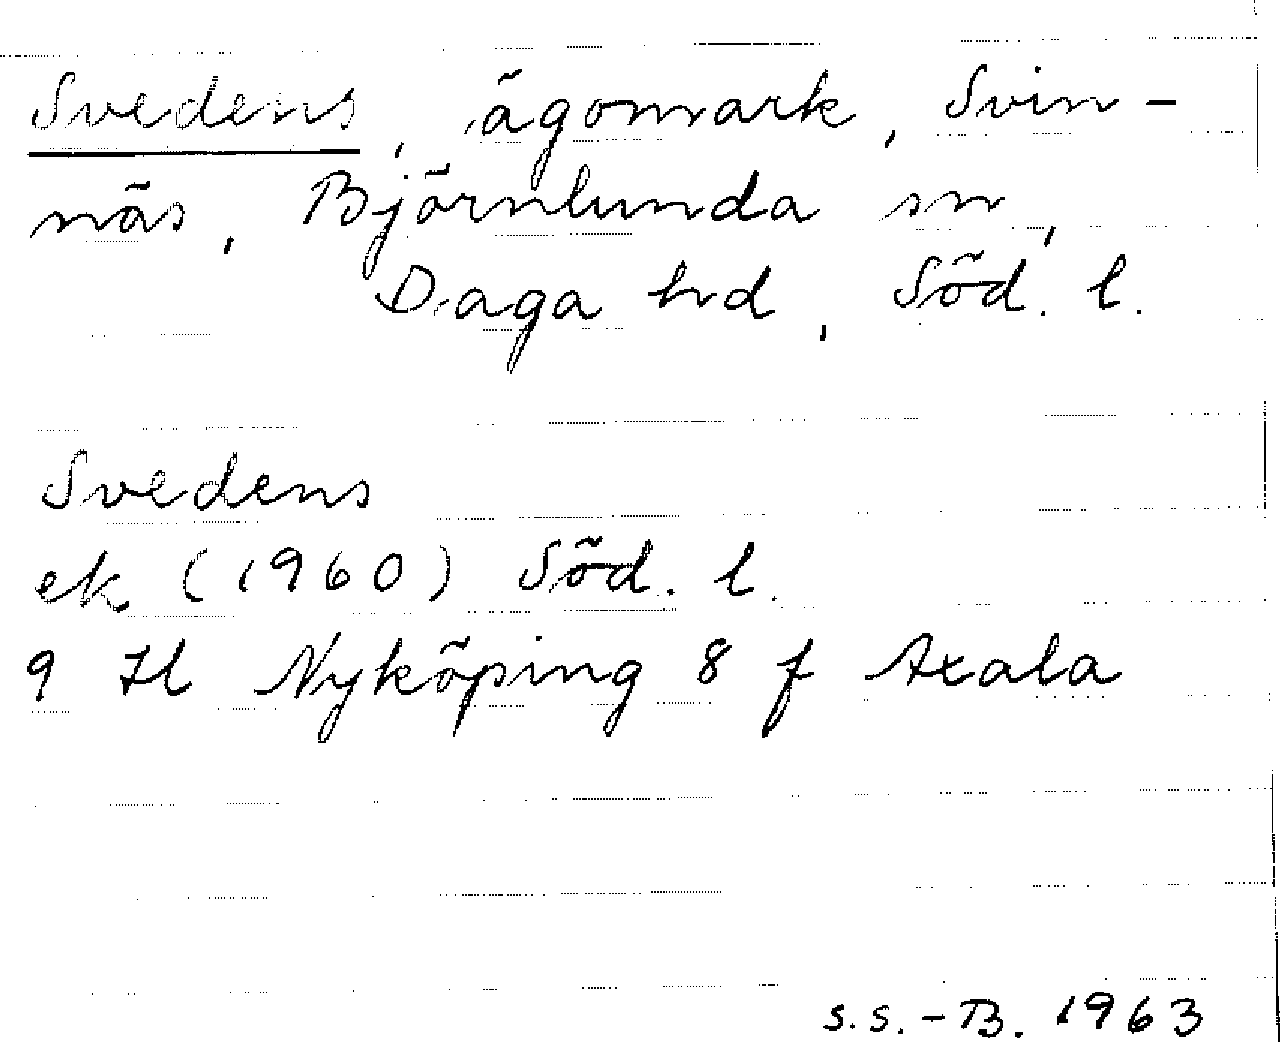 Svedens, ägomark, Svin-
näs, Björnlunda sn,
Daga hd, Söd. l.
Svedens
ek (1960) Söd. l.
9 Hl Nyköping 8 f Axala
S.S.-B. 1963